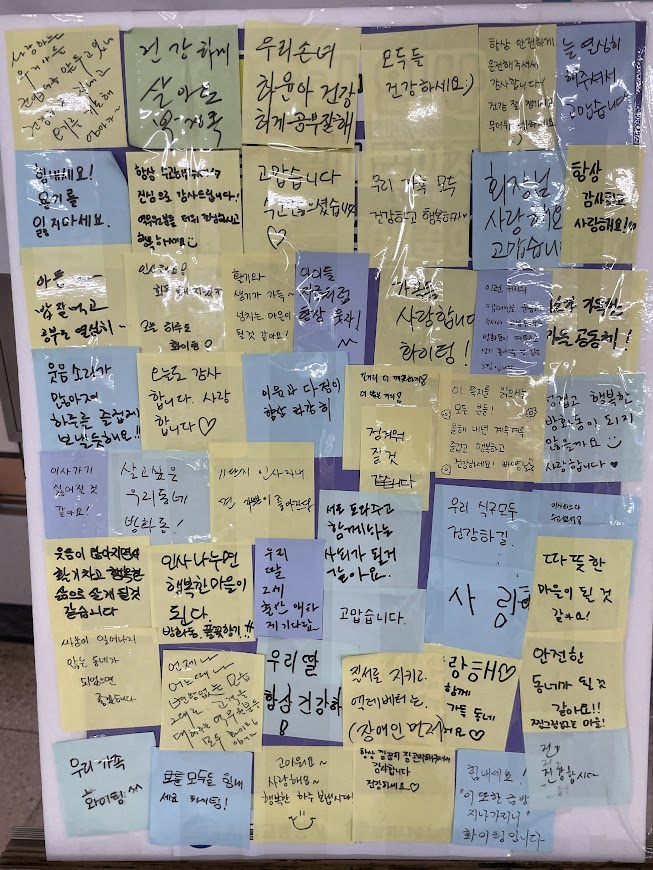 사랑하는
건강하게
살아도
행복
우리손녀
하윤아 건강
하게 공부잘해
모두들
건강하세요:)
항상 안전하게
운전해주셔서
감사합니다!
건강 잘 챙기시고
늘 열심히
해주셔서
고맙습니다
힘내세요!
용기를
잃지마세요.
항상 수고해주셔서
진심으로 감사드립니다!
행복하세요
고맙습니다
수고많으셨습니다
♡
우리 가족 모두
건강하고 행복하자~
회장님
사랑해요
고맙습니
항상
감사하고
사랑해요!
아픈
밥 잘먹고
공부 열심히~
인사해요!
오늘 하루도
화이팅
활기와
생기가 가득~
넘치는 마을이
될것 같아요!
아이들
처럼
항상 웃자!
사랑합니다
화이팅!
가득한
마을 공동체!
웃음 소리가
많아져
하루를 즐겁게
보낼듯해요!!
오늘도 감사
합니다. 사랑
합니다♡
이웃과 다정히
항상
즐거워
질 것
같습니다
이 쪽지를 읽으시는
모든 분들!
올해 내년 계속계속
즐겁고 행복하고
건강하세요!
즐겁고 행복한
방화동이 되지
않을까요
사랑합니다♥
이사가기
싫어진 것
같아요!
살고싶은
우리동네
방화동!
11단지 인사하기
서로 도와주고
함께하는
사회가 될거
같아요.
우리 식구모두
건강하길.
웃음이 많아지면서
활기차고 행복한
삶으로 살게 될것
같습니다
인사 나누면
행복한마음이
된다.
방화동 꿈꿀학기!!
우리
딸
2세
출산
고맙습니다.
사 랑
따뜻한
마음이 될 것
같아요!
싸움이 일어나지
않는 동네가
되었으면
좋겠습니다
언제나
어느때나
변함없는 모습
우리딸
항상 건강하
질서를 지키라
엘레베터는
(장애인먼저)
항상 깔끔히 잘 관리해주셔서
감사합니다
건강하세요♡
랑해♡
함께
가득 동네
안전한
동네가 될것
같아요!!
우리 가족
화이팅 ^^
모두 모두들 힘내
세요 화이팅!
고마워요~
사랑해요~
행복한 하루 보냅시다!
힘내세요!
"이 또한 금방
지나가리니"
화이팅입니다
건강합시다